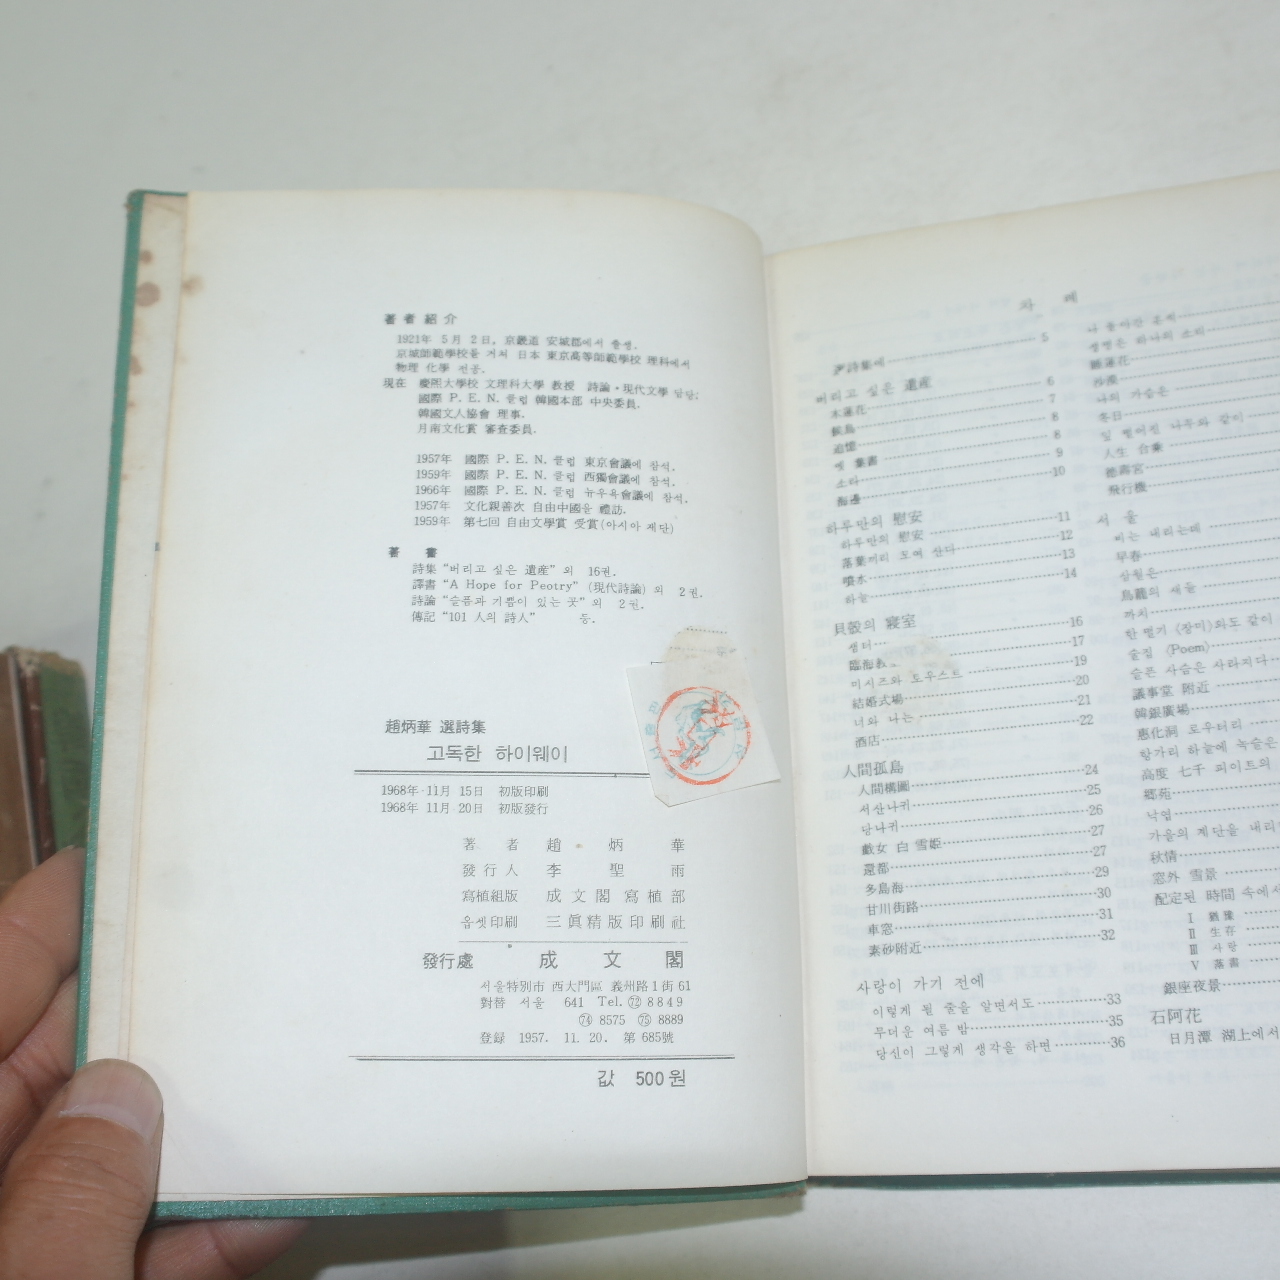 著者紹介
1921年 5月 2日, 京畿道 安城郡에서 출생.
京城師範學校를 거쳐 日本 東京高等師範學校 理科에서
物理 化學 전공.
現在 慶熙大學校 文理科大學 教授 詩論・現代文學 담당;
國際 P. E. N. 클럽 韓國本部 中央委員.
韓國文人協會 理事.
月南文化賞 審査委員.
1957年 國際 P. E. N. 클럽 東京會議에 참석.
1959年 國際 P. E. N. 클럽 西獨會議에 참석.
1966年 國際 P. E. N. 클럽 뉴우욕會議에 참석.
1957年 文化親善次 自由中國을 禮訪.
1959年 第七回 自由文學賞 受賞(아시아 재단)
著 書
詩集 “버리고 싶은 遺産” 외 16권.
譯書 “A Hope for Peotry” (現代詩論) 외 2권.
詩論 “슬픔과 기쁨이 있는 곳” 외 2권.
傳記 “101 人의 詩人” 등.
趙炳華 選詩集
고독한 하이웨이
1968年 11月 15日 初版印刷
1968年 11月 20日 初版發行
著者 趙炳華
發行人 李聖雨
寫植組版 成文閣 寫植部
옵셋印刷 三眞精版印刷社
發行處 成文閣
서울特別市 西大門區 義州路1街 61
對替 서울 641 Tel. ㉒ 8849
㉔ 8575 ㉕ 8889
登録 1957. 11. 20. 第 685號
값 500원
차 례
詩集에 5
버리고 싶은 遺産 6
木蓮花 7
候鳥 8
追憶 8
옛 葉書 9
소라 10
海邊
하루만의 慰安 11
하루만의 慰安 12
落葉끼리 모여 산다 13
噴水 14
하늘
貝殼의 寢室 16
샘터 17
臨海
미시즈와 도우스트 19
結婚式場 20
너와 나는 21
酒店 22
人間孤島 24
人間構圖 25
서산나귀 26
당나귀 27
戱女 白雪姫 27
還都 29
多島海 30
甘川街路 31
車窓 32
素砂附近
사랑이 가기 전에
이렇게 될 줄을 알면서도 33
무더운 여름 밤 35
당신이 그렇게 생각을 하면 36
생명은 하나의 소리
睡蓮花
沙漠
나의 가슴은
冬日
잎 떨어진 나무와 같이
人生 合乘
德壽宮
飛行機
서울
비는 내리는데
早春
삼월은
鳥籠의 새들
까치
한 떨기 (장미)와도 같이
술집 〈Poem〉
슬픈 사슴은 사라지다
議事堂 附近
韓銀廣場
惠化洞 로우터리
항가리 하늘에 녹슬은
高度 七千 피이트의
鄕苑
낙엽
가을의 계단을 내리
秋情
窓外 雪景
配定된 時間 속에서
Ⅰ 猶豫
Ⅱ 生存
Ⅲ 사랑
Ⅴ 葉書
銀座夜景
石阿花
日月潭 湖上에서